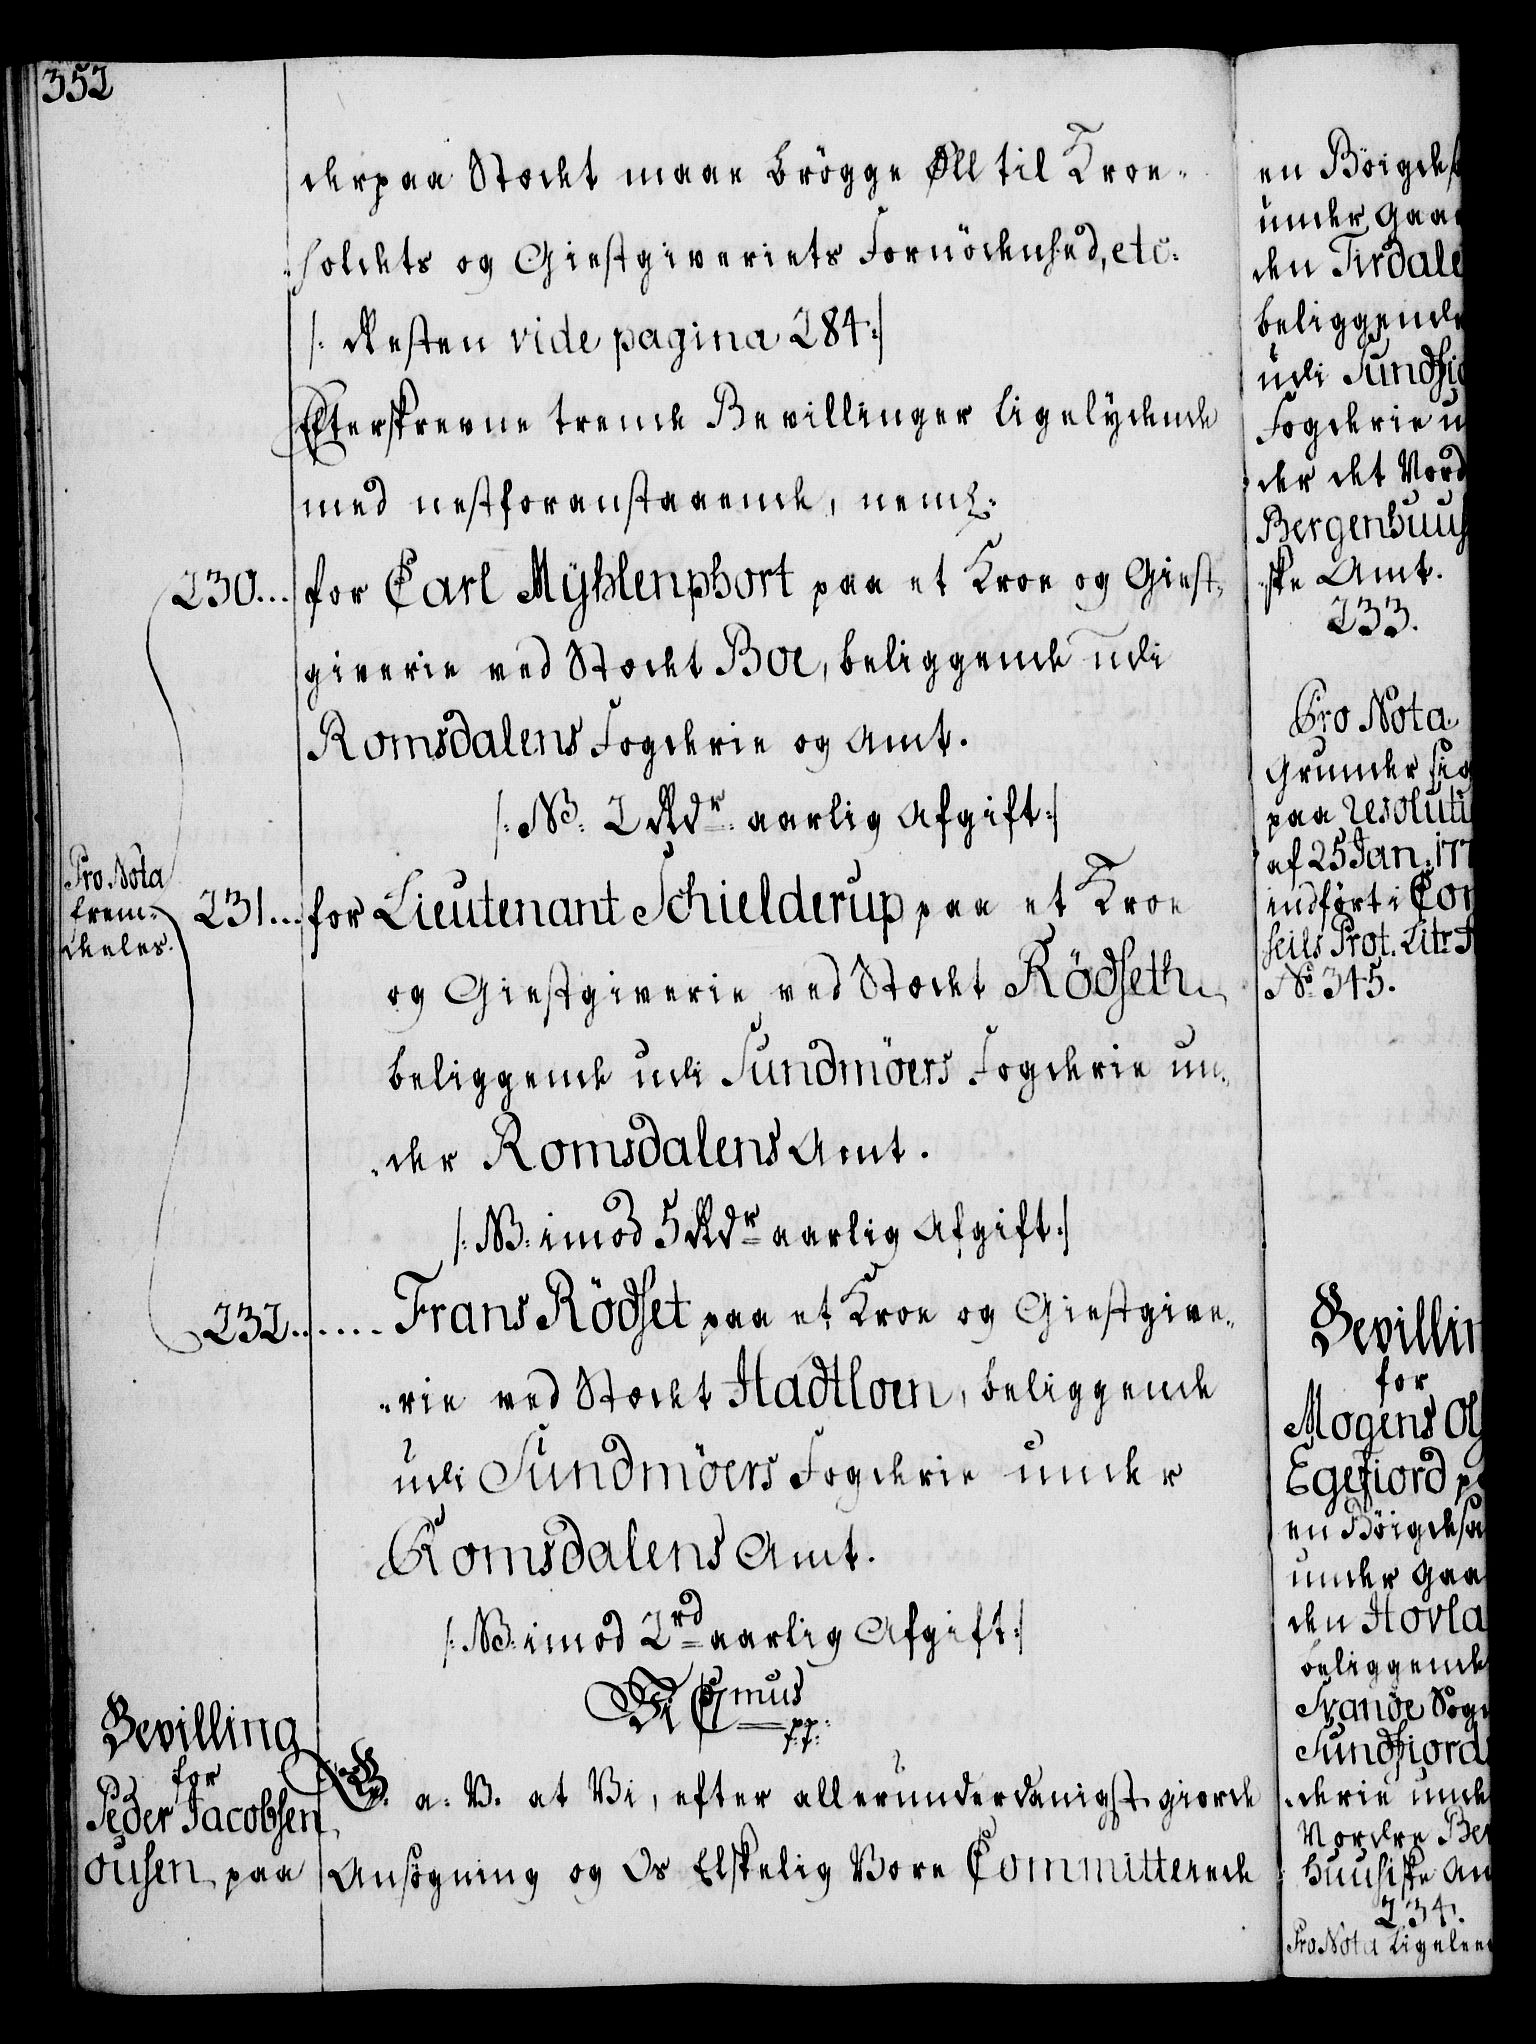 352
derpaa Stædet maae brögge Øll til Kroe-
-holdets og Giestgiveriets Fornödenhed, etc:
/: Resten vide pagina 284:/
Efterskrevne trende Bevillinger ligelÿdende
med nestforanstaaende, neml:
230... for Carl Mÿhlenphort paa et Kroe og Giest-
giverie ved Stædet Boe, beliggende udi
Romsdalens Fogderie og Amt.
/: NB: 2 Rdr: aarlig Afgift:/
Pro Nota
frem-
deeles.
231... for Lieutenant Schielderup paa et Kroe
og Giestgiverie ved Stædet Rödseth,
beliggende udi Sundmöers Fogderie un-
-der Romsdalens Amt.
/: NB: imod 5 Rdr aarlig Afgift:/
232....... Frans Rödset paa et Kroe og Giestgive-
-rie ved Stædet Hadtloen, beliggende
udi Sundmöers Fogderie under
Romsdalens Amt.
/: NB: imod 2 rd aarlig Afgift:/
Vi Cmus
pp:
Bevilling
for
Peder Jacobsen
ousen, paa
G. a. V. at Vi, efter allerunderdanigst giorde
Ansögning og Os Elskelig Vore Committerede
en Böigde
under Gaa
den Tirdale
beliggende
udi Sundfio
Fogderie u
der det Nord
Bergenhuus
-ske Amt.
233.
Pro Nota
Grunder sig
paa resoluti
af 25 Jan: 177
indfört i Con
seils Prot. Litr: A
No 345.
Bevillin
for
Mogens Ol
Egefiord p
en Böigdesa
under Gaa
den Hovla
beliggende
Svanöe Sog
Sundfiord
-derie unde
Nordre Ber
huusiske Am
234.
Pro Nota Ligelee